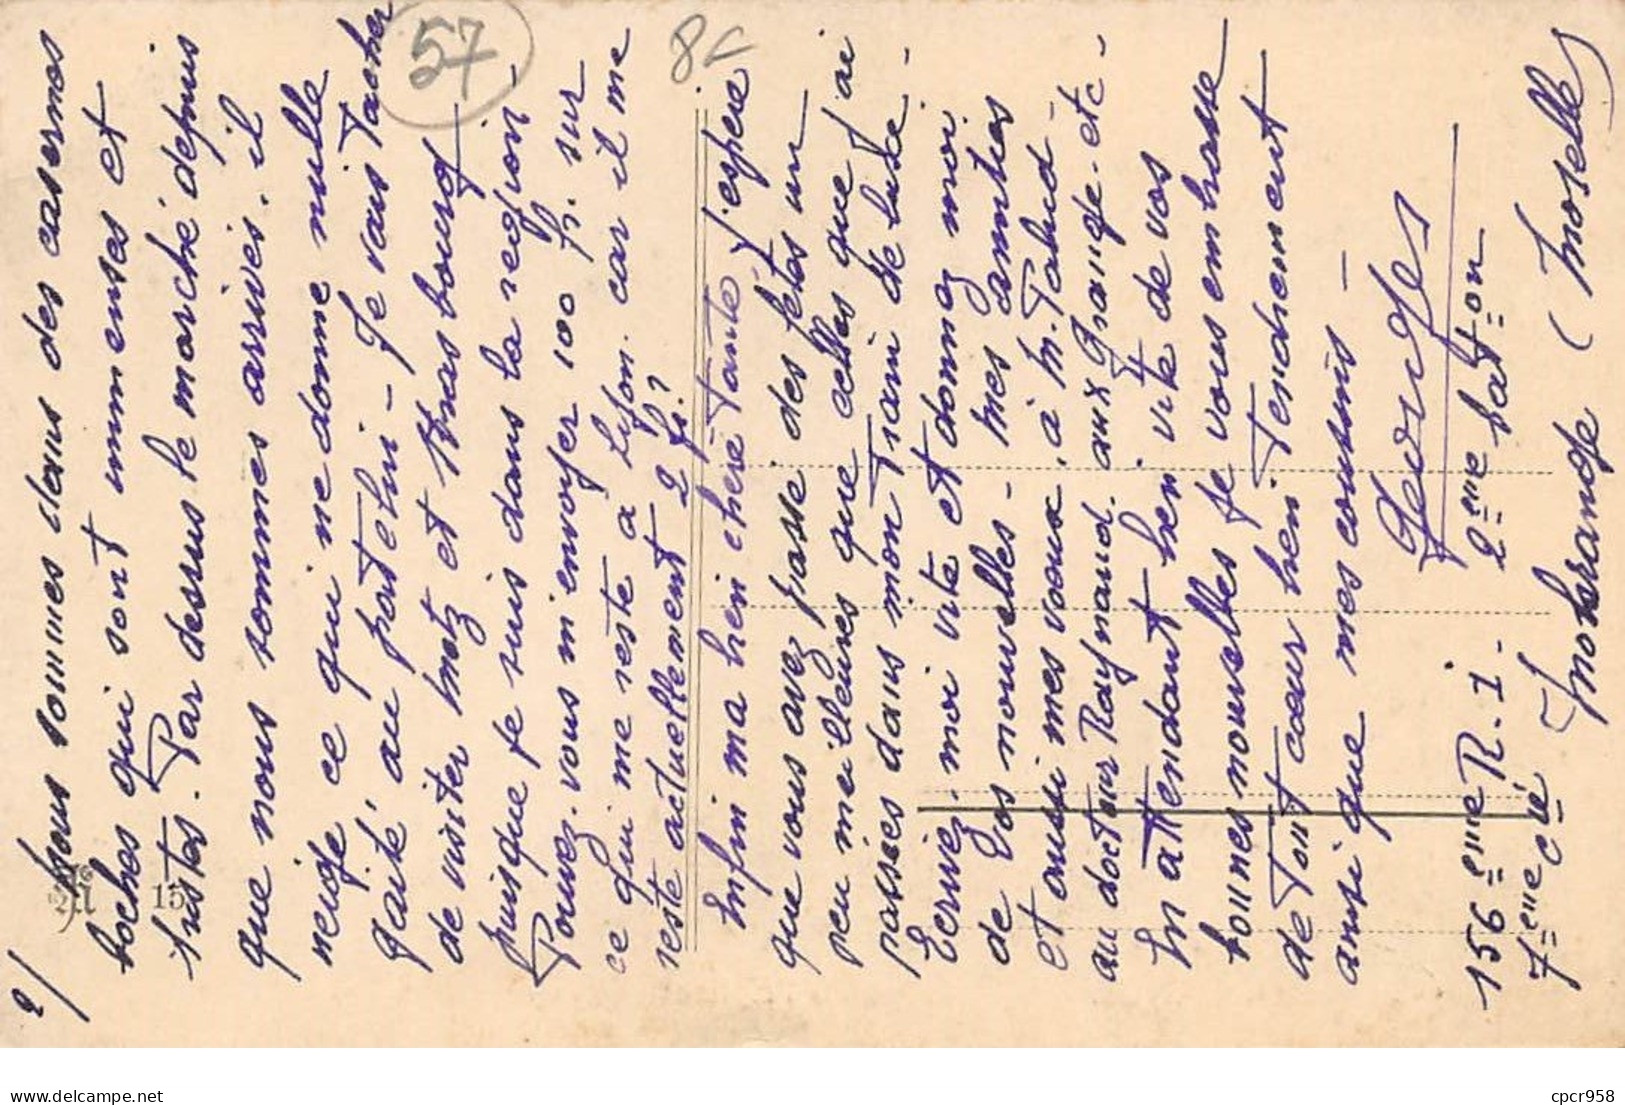 2/
Nous sommes dans des casernes
boches qui sont immenses et
tristes. Par dessus le marché depuis
que nous sommes arrivés, il
neige ce qui ne donne nulle
gaité au patelin - Je vais tacher
de visiter Metz et Strasbourg
puisque je suis dans la région -
Pouvez-vous m'envoyer 100 fr. sur
ce qui me reste à Lyon. car il me
reste actuellement 2 fr?
Enfin ma bien chère Tante j'espère
que vous avez passé des fêtes un
peu meilleures que celles que j'ai
passées dans mon train de luxe -
Ecrivez-moi vite et donnez moi
de vos nouvelles - mes amitiés
et aussi mes voeux, à M. Talund -
au docteur Raynaud. aux Grange - etc -
En attendant bien vite de vos
bonnes nouvelles je vous embrasse
de tout cœur bien tendrement
ainsi que mes cousins -
Georges
156 ème R. I. - 2 ème bat on
7 ème cie
Morhange (Moselle)
57
8c
15
delcampe.net
cpcr958